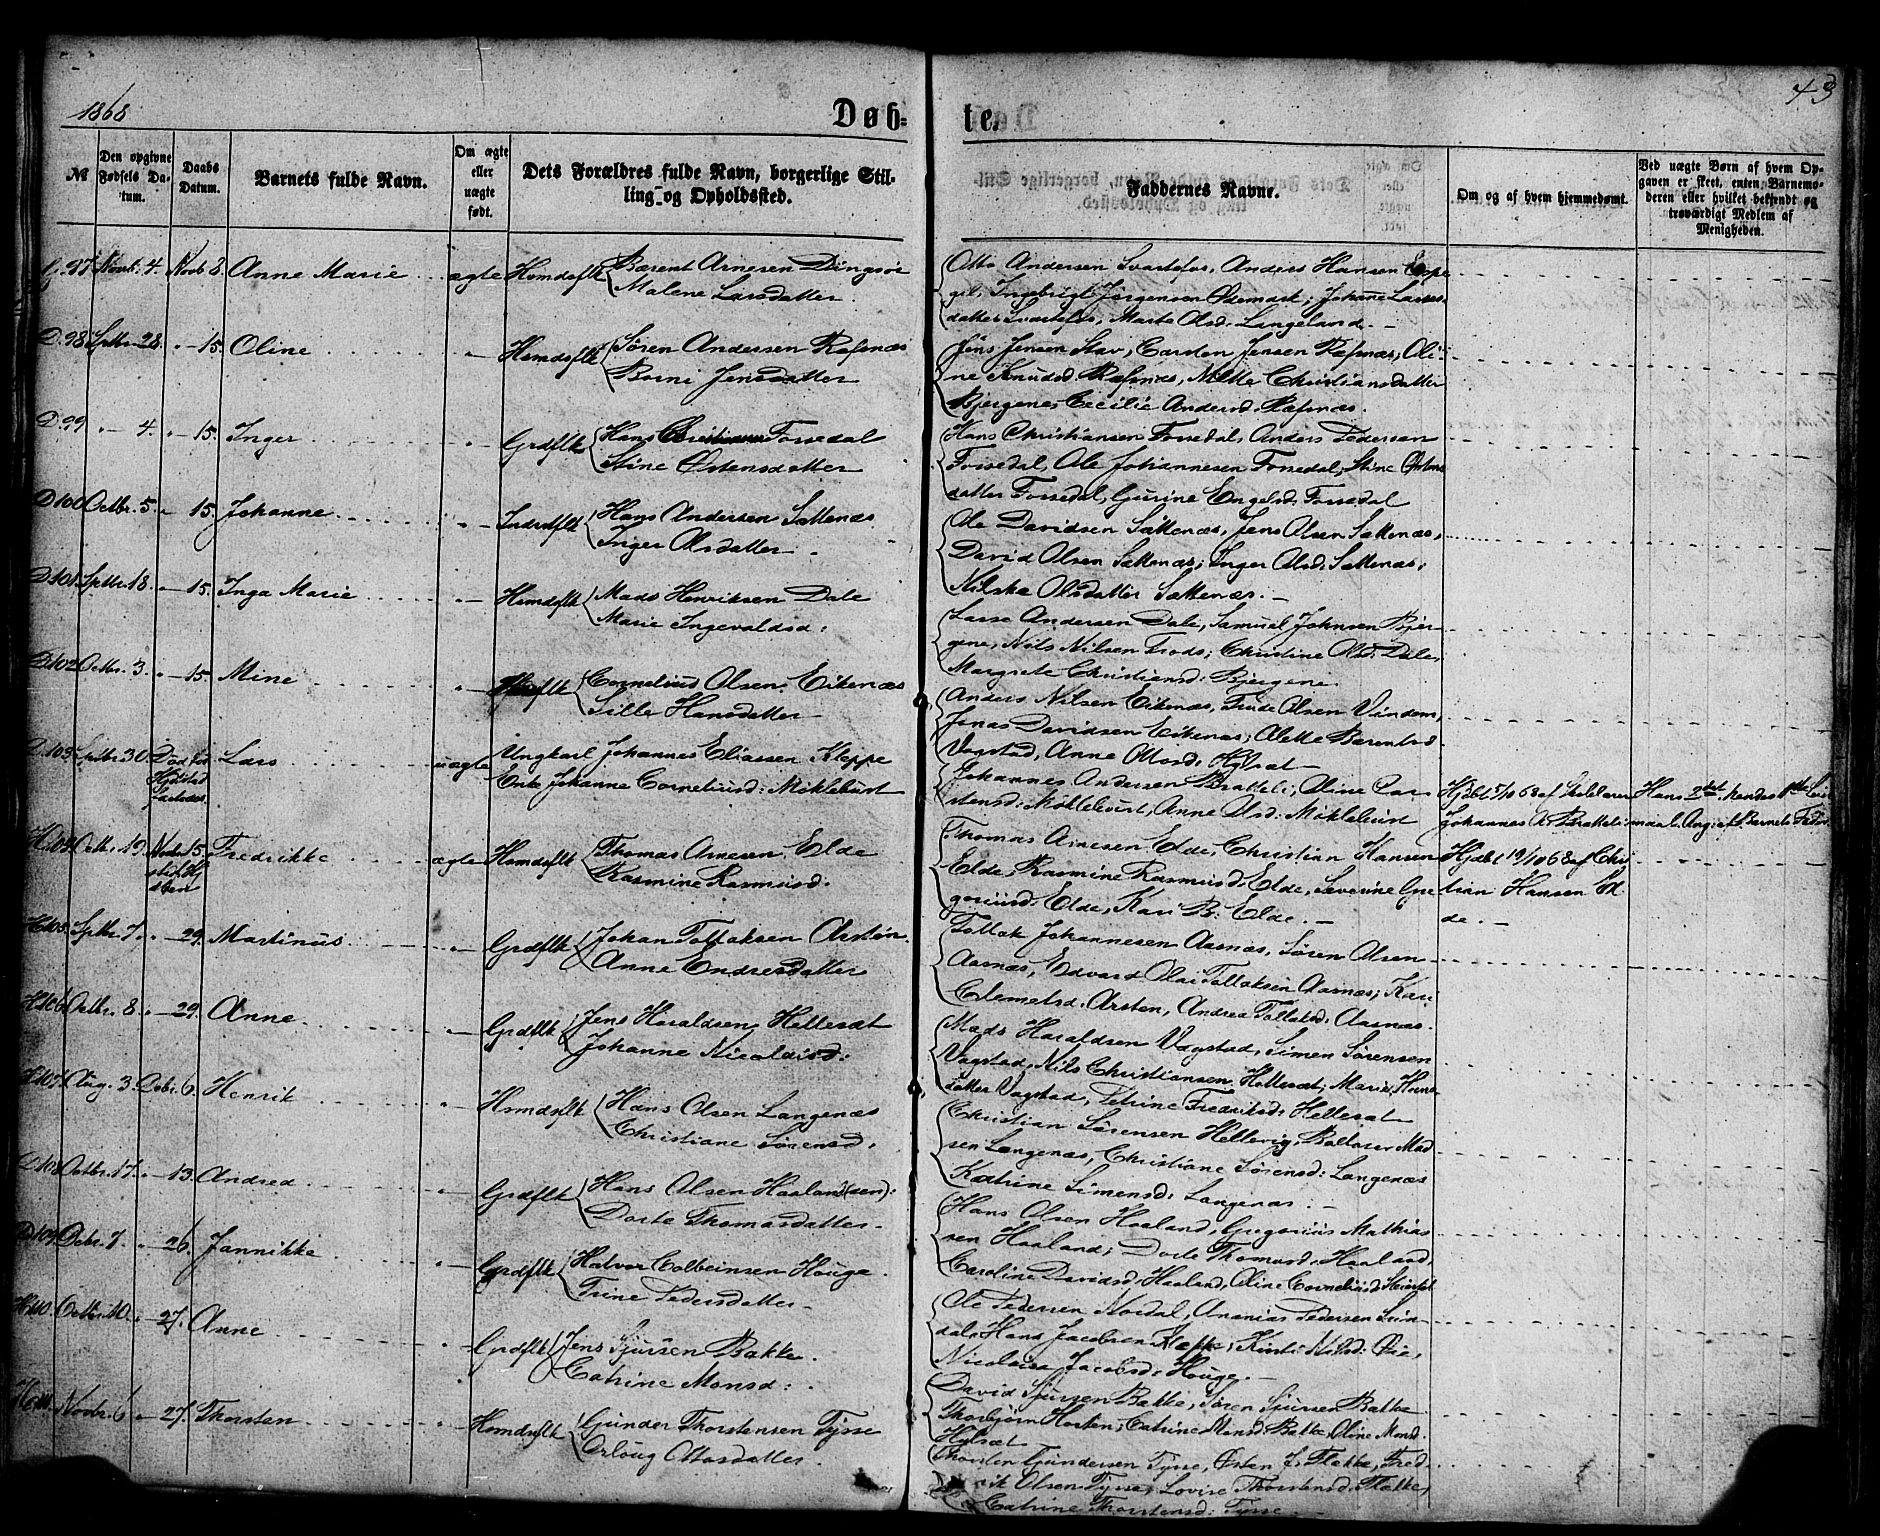 1868
Døb=
te.
43
№
Den opgivne Fødsels Datum.
Daabs Datum.
Barnets fulde Navn.
Om ægte eller uægte født.
Dets Forældres fulde Navn, borgerlige Stilling og Opholdssted.
Faddernes Navne.
Om og af hvem hjemmedøbt.
Ved uægte Børn af hvem Opgaven er skeet, enten Barnemoderen eller hvilket bekjendt og troværdigt Medlem af Menigheden.
97 Novb. 4. Novb 8. Anne Marie ægte Hsmdsflk Bærent Arnesen Dingsør
Malene Larsdatter
Otto Andersen Svartefos, Anders Hansen Espe
gil, Ingebrigt Jørgensen Ødemark, Johanne Lars
datter Svartefos, Marte Olsd. Langeland. -
D. 98 Sptbr. 28. " 15. Oline " Hsmdsflk Søren Andersen Ræfsnæs
Borni Jensdatter
Jens Jensen Stav, Carsten Jensen Ræfsnæs, Oli
ne Knudsd. Ræfsnæs, Mette Christiansdatter
Bjergene, Cecilie Andersd. Ræfsnæs.
D. 99 " 4. " 15. Inger " Grdflk Hans Christiansen Fossedal
Stine Østensdatter
Hans Christiansen Fossedal, Anders Pedersen
Fossedal, Ole Johannesen Fossedal, Stine Østens
datter Fossedal, Gurine Engelsd. Fossedal
D. 100 Octbr. 5. " 15. Johanne " Indrstflk Hans Andersen Sættenæs
Inger Olsdatter
Ole Davidsen Sættenæs, Jens Olsen Sættenæs,
David Olsen Sættenæs, Inger Olsd. Sættenæs,
Nilska Olsdatter Sættenæs. -
D. 101 Sptbr. 18. " 15. Inga Marie " Hsmdsflk Mads Henriksen Dale
Marie Ingevaldsd:
Lasse Andersen Dale, Samuel Johnsen Bjer-
gene, Nils Nilsen Trods, Christine Olsd. Dale,
Margrete Christiansd. Bjergene.
D. 102 Octbr. 3. " 15. Mine " flk Cornelius Olsen Eikenæs
Sille Hansdatter
Anders Nilsen Eikenæs, Olsen Vindem,
Jonas Davidsen Eikenæs, Alette Bærentsd.
Vagstad, Anne Ottosd. Hylsæt
D. 103 Sptbr. 30. Lars uægte Ungkarl Johannes Eliassen Kleppe
Enke Johanne Corneliusd: Møklebust
Johannes Andersen Bratteli, Oline Car-
stensd: Møklebust, Anne Olsd: Møklebust
Hjdbt 5/10 68 af Skolelærer
Johannes A. Bratteli
Hans 2det hendes 1ste Leier
maal. Ang. af Barnets Fader
Octbr. 19. Novbr. 15. Fredrikke ægte Hsmdsflk Thomas Arnesen Elde
Rasmine Rasmusd.
Thomas Arnesen Elde, Christian Hansen
Elde, Rasmine Rasmusd. Elde, Severine Gre
goriusd. Elde, Kari B. Elde. -
Hjdbt 19/10 68 af Chri
stian Hansen El
de. -
H. 105. Sptbr. 7. " 29. Martinus " Grdflk Johan Tollaksen Arsten
Anne Endresdatter
Tollak Johannesen Aasnæs, Søren Olsen
Aasnæs, Edvard Olai Tollaksen Aasnæs, Kari
Clemetsd. Arsten, Andrea Tollaksd. Aasnæs.
H. 106 Octbr. 8. " 29. Anne " Grdflk Jens Haraldsen Hellesæt
Johanne Nicolaisd:
Mads Haraldsen Vagstad, Simen Sørensen
Vagstad, Nils Christiansen Hellesæt, Marie Hans
datter Vagstad, Petrine Fredriksd. Hellesæt
107 Aug. 3. Decbr. 6. Henrik " Hsmdsflk Hans Olsen Langenæs
Christiane Sørensd.
Christian Sørensen Hellevig, Baltaser Mad
sen Langenæs, Christiane Sørensd: Langenæs
Kathrine Simensd: Langenæs. -
D. 108 Octbr. 17. " 13. Andrea " Grdflk Hans Olsen Haaland(sen):
Dorte Thomasdatter
Hans Olsen Haaland, Gregorius Mathias
sen Haaland, Dorte Thomasd. Haaland,
Caroline Davidsd. Haaland, Oline Corneliusd
D. 109 Decbr. 7. " 26. Jannikke " Grdflk Halvor Colbeinsen Houge
Trine Pedersdatter
Ole Pedersen Nordal, Ananias Pedersen Sun
dal, Hans Jacobsen Kleppe, Kirsti Nilsd. Øie,
Nicolina Jacobsd. Houge. -
H. 110 Octbr. 10. " 27. Anne " Grdflk Jens Sjursen Bakke
Catrine Monsd:
David Sjursen Bakke, Søren Sjursen Bakke
Thorbjørn Horsten, Catrine Monsd. Bakke, Oline Monsd.
Hylsæt
H. 111. Novbr. 6 " 27. Thorsten " Hsmdsflk Gunder Thorstensen Tysse
Orloug Ottosdatter
Thorsten Gundersen Tysse, Østen J. Flekke, Fred
rik Olsen Tysse, Lovise Thorstensd. Flekke,
Catrine Thorstensd: Tysse. -